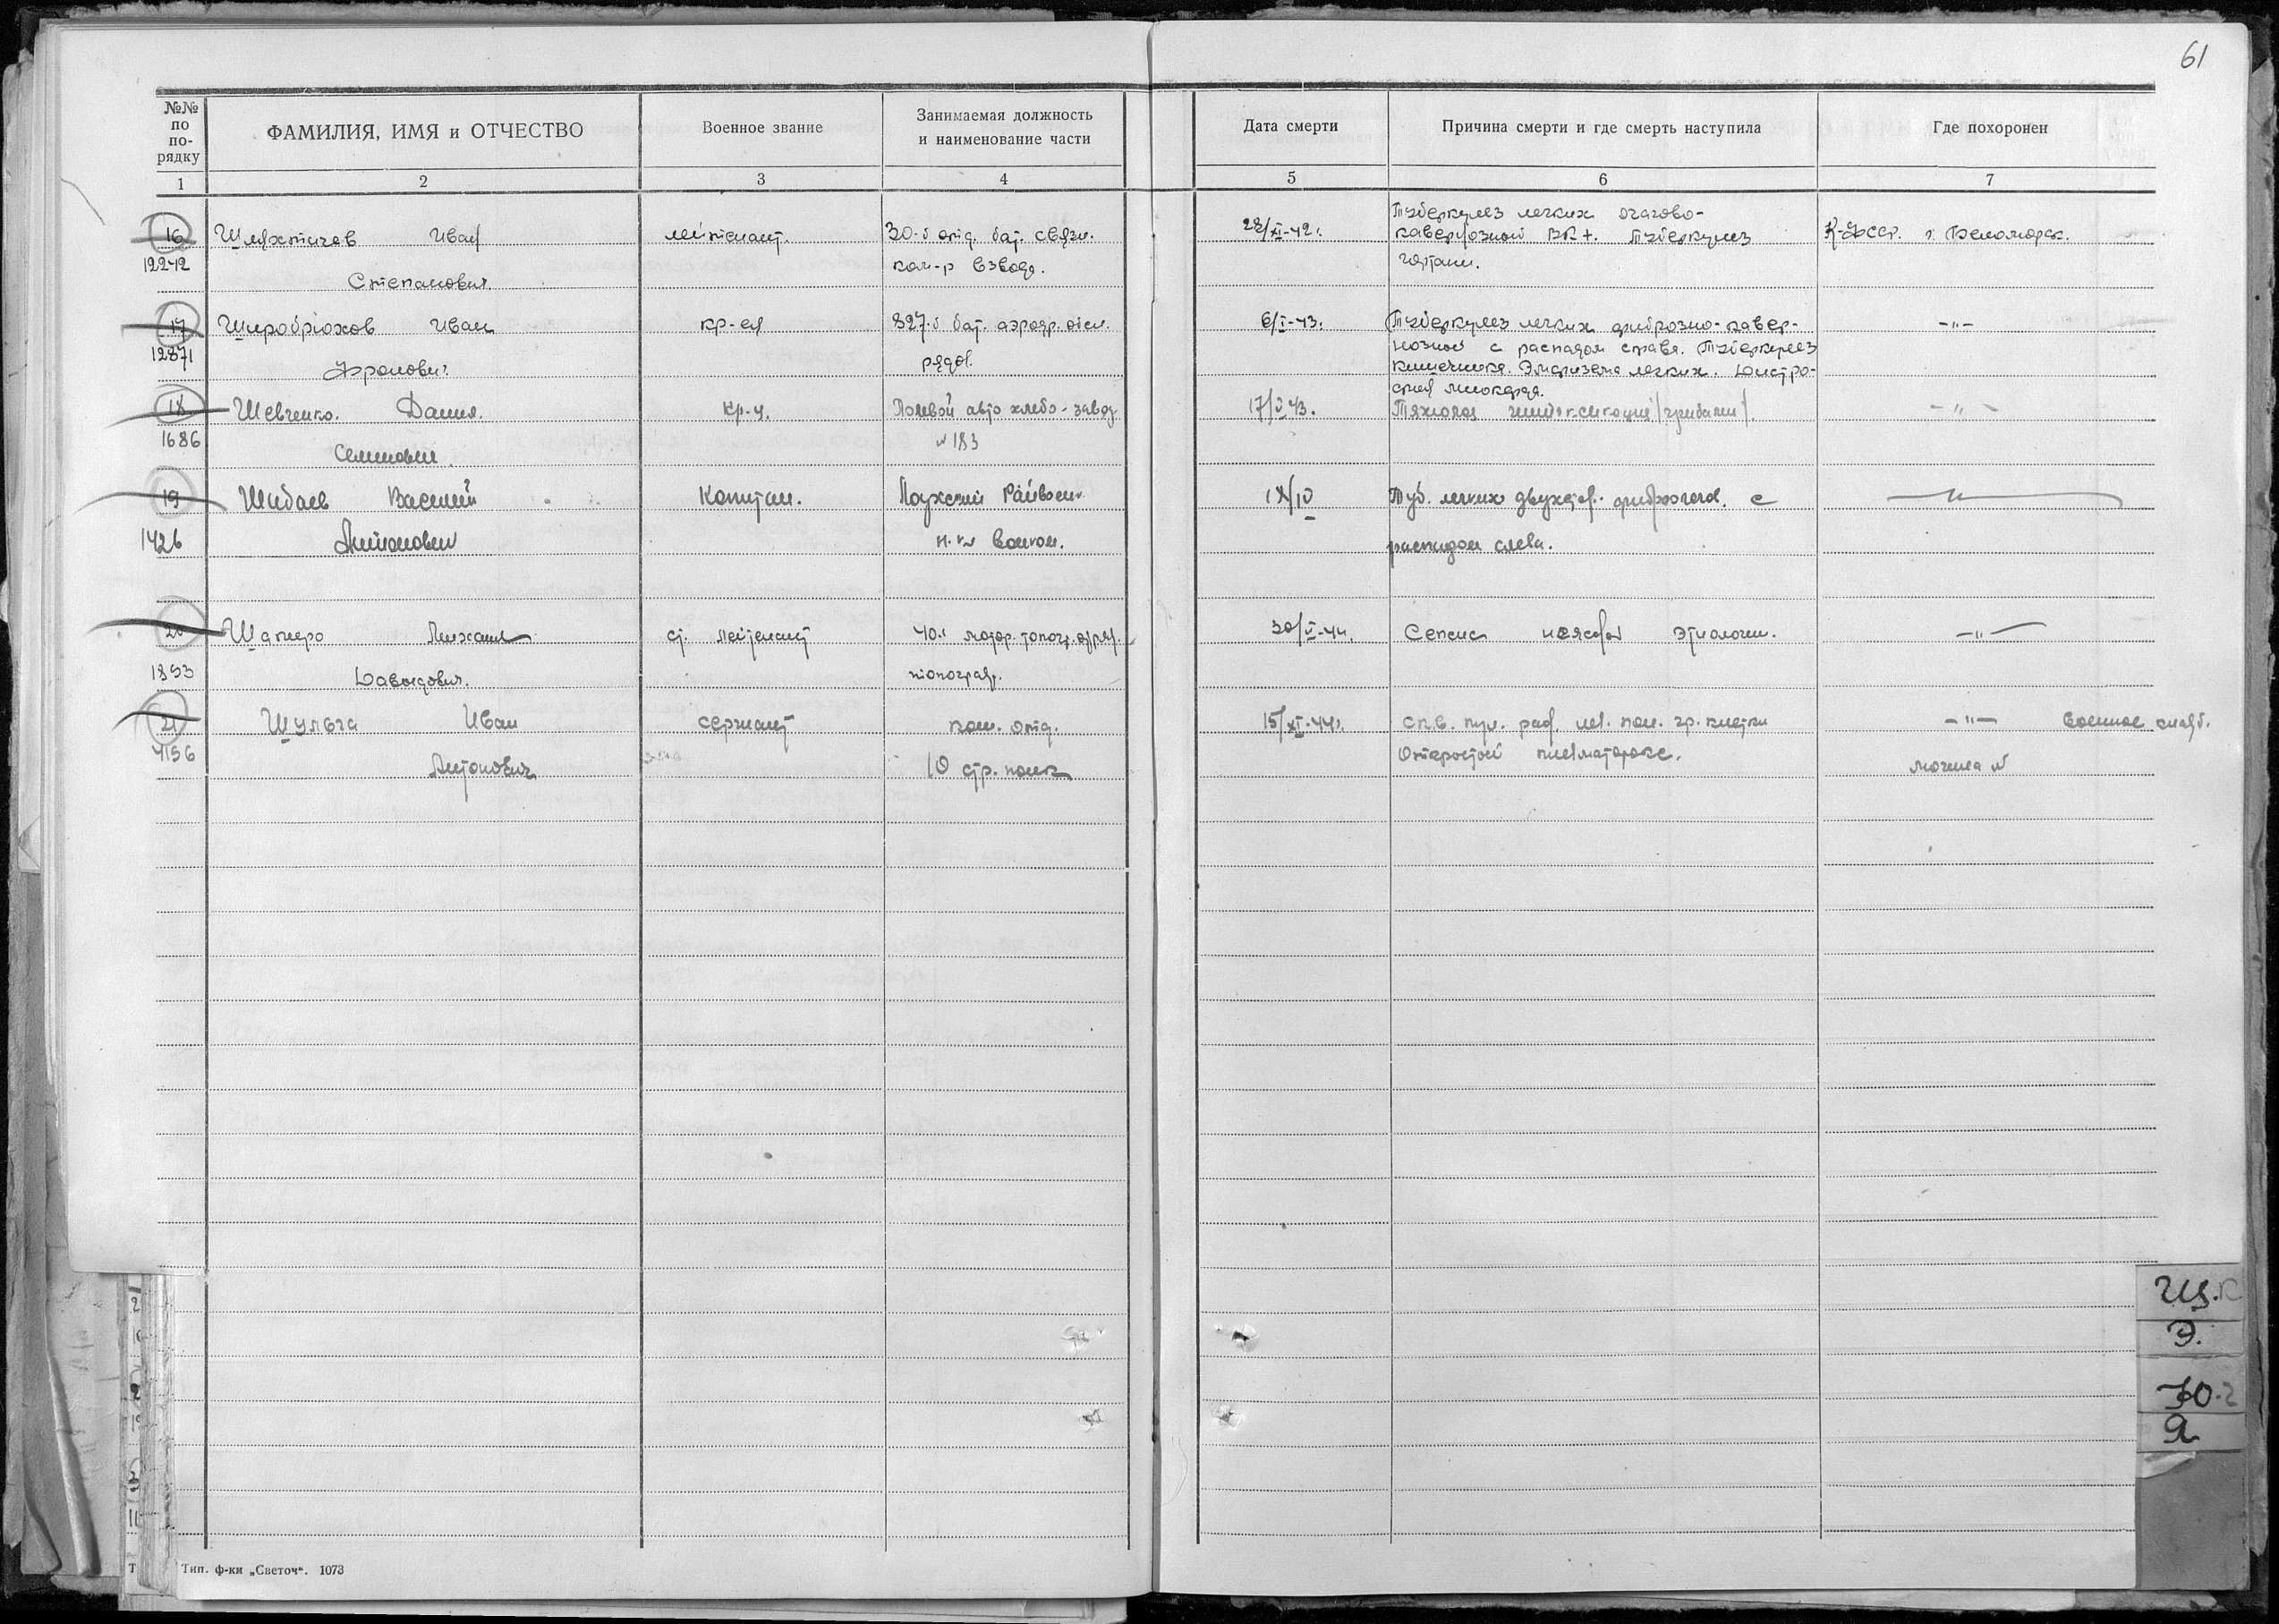 61
№№ по по-рядку
ФАМИЛИЯ, ИМЯ и ОТЧЕСТВО
Военное звание
Занимаемая должность
и наименование части
Дата смерти
Причина смерти и где смерть наступила
Где похоронен
1 2 3 4 5 6 7
16 Шляхтичев Иван лейтенант. 30-б отд. бат. связи. 28/XI-42г. Туберкулез легких очагово-
кавернозной ВК+. Туберкулез К-Фсср. г. Беломорск.
12242 Степанович. ком-р взвода. гортани.
17 Широбрюхов Иван кр-ец 827-б бат. аэродр. обсл. 6/I-43. Туберкулез легких фиброзно-кавер- -"-
12871 Фролович. рядов. нозной с распадом справа. Туберкулез
кишечника. Эмфизема легких. Дистро-
фия миокарда.
18 Шевченко. Данил. кр-ц. Полевой авто хлебо-завод 17/V 43. Тяжелая интоксикация /грибами/. -"-
1686 Семенович. №183
19 Шибаев Василий Капитан. Лоухский Райвоен. 18/IV Туб. легких двухстор. с -"-
1426 Антонович распадом слева.
20 Шапиро Михаил ст. лейтенант 40й мотор. топогр. отряд. 30/V-44. Сепсис неясной этиологии. -"-
1893 Давыдович. топограф.
21 Шульга Иван сержант ком. отд. 15/XI-44г. Скв. пул. ран. лев. пол. гр. клетки -"- Военное кладб.
4156 Антонович 10 стр. полк Открытый пневматоракс. могила №
Тип. ф-ки „Светоч“. 1073
Щ.
Э.
Ю.
Я